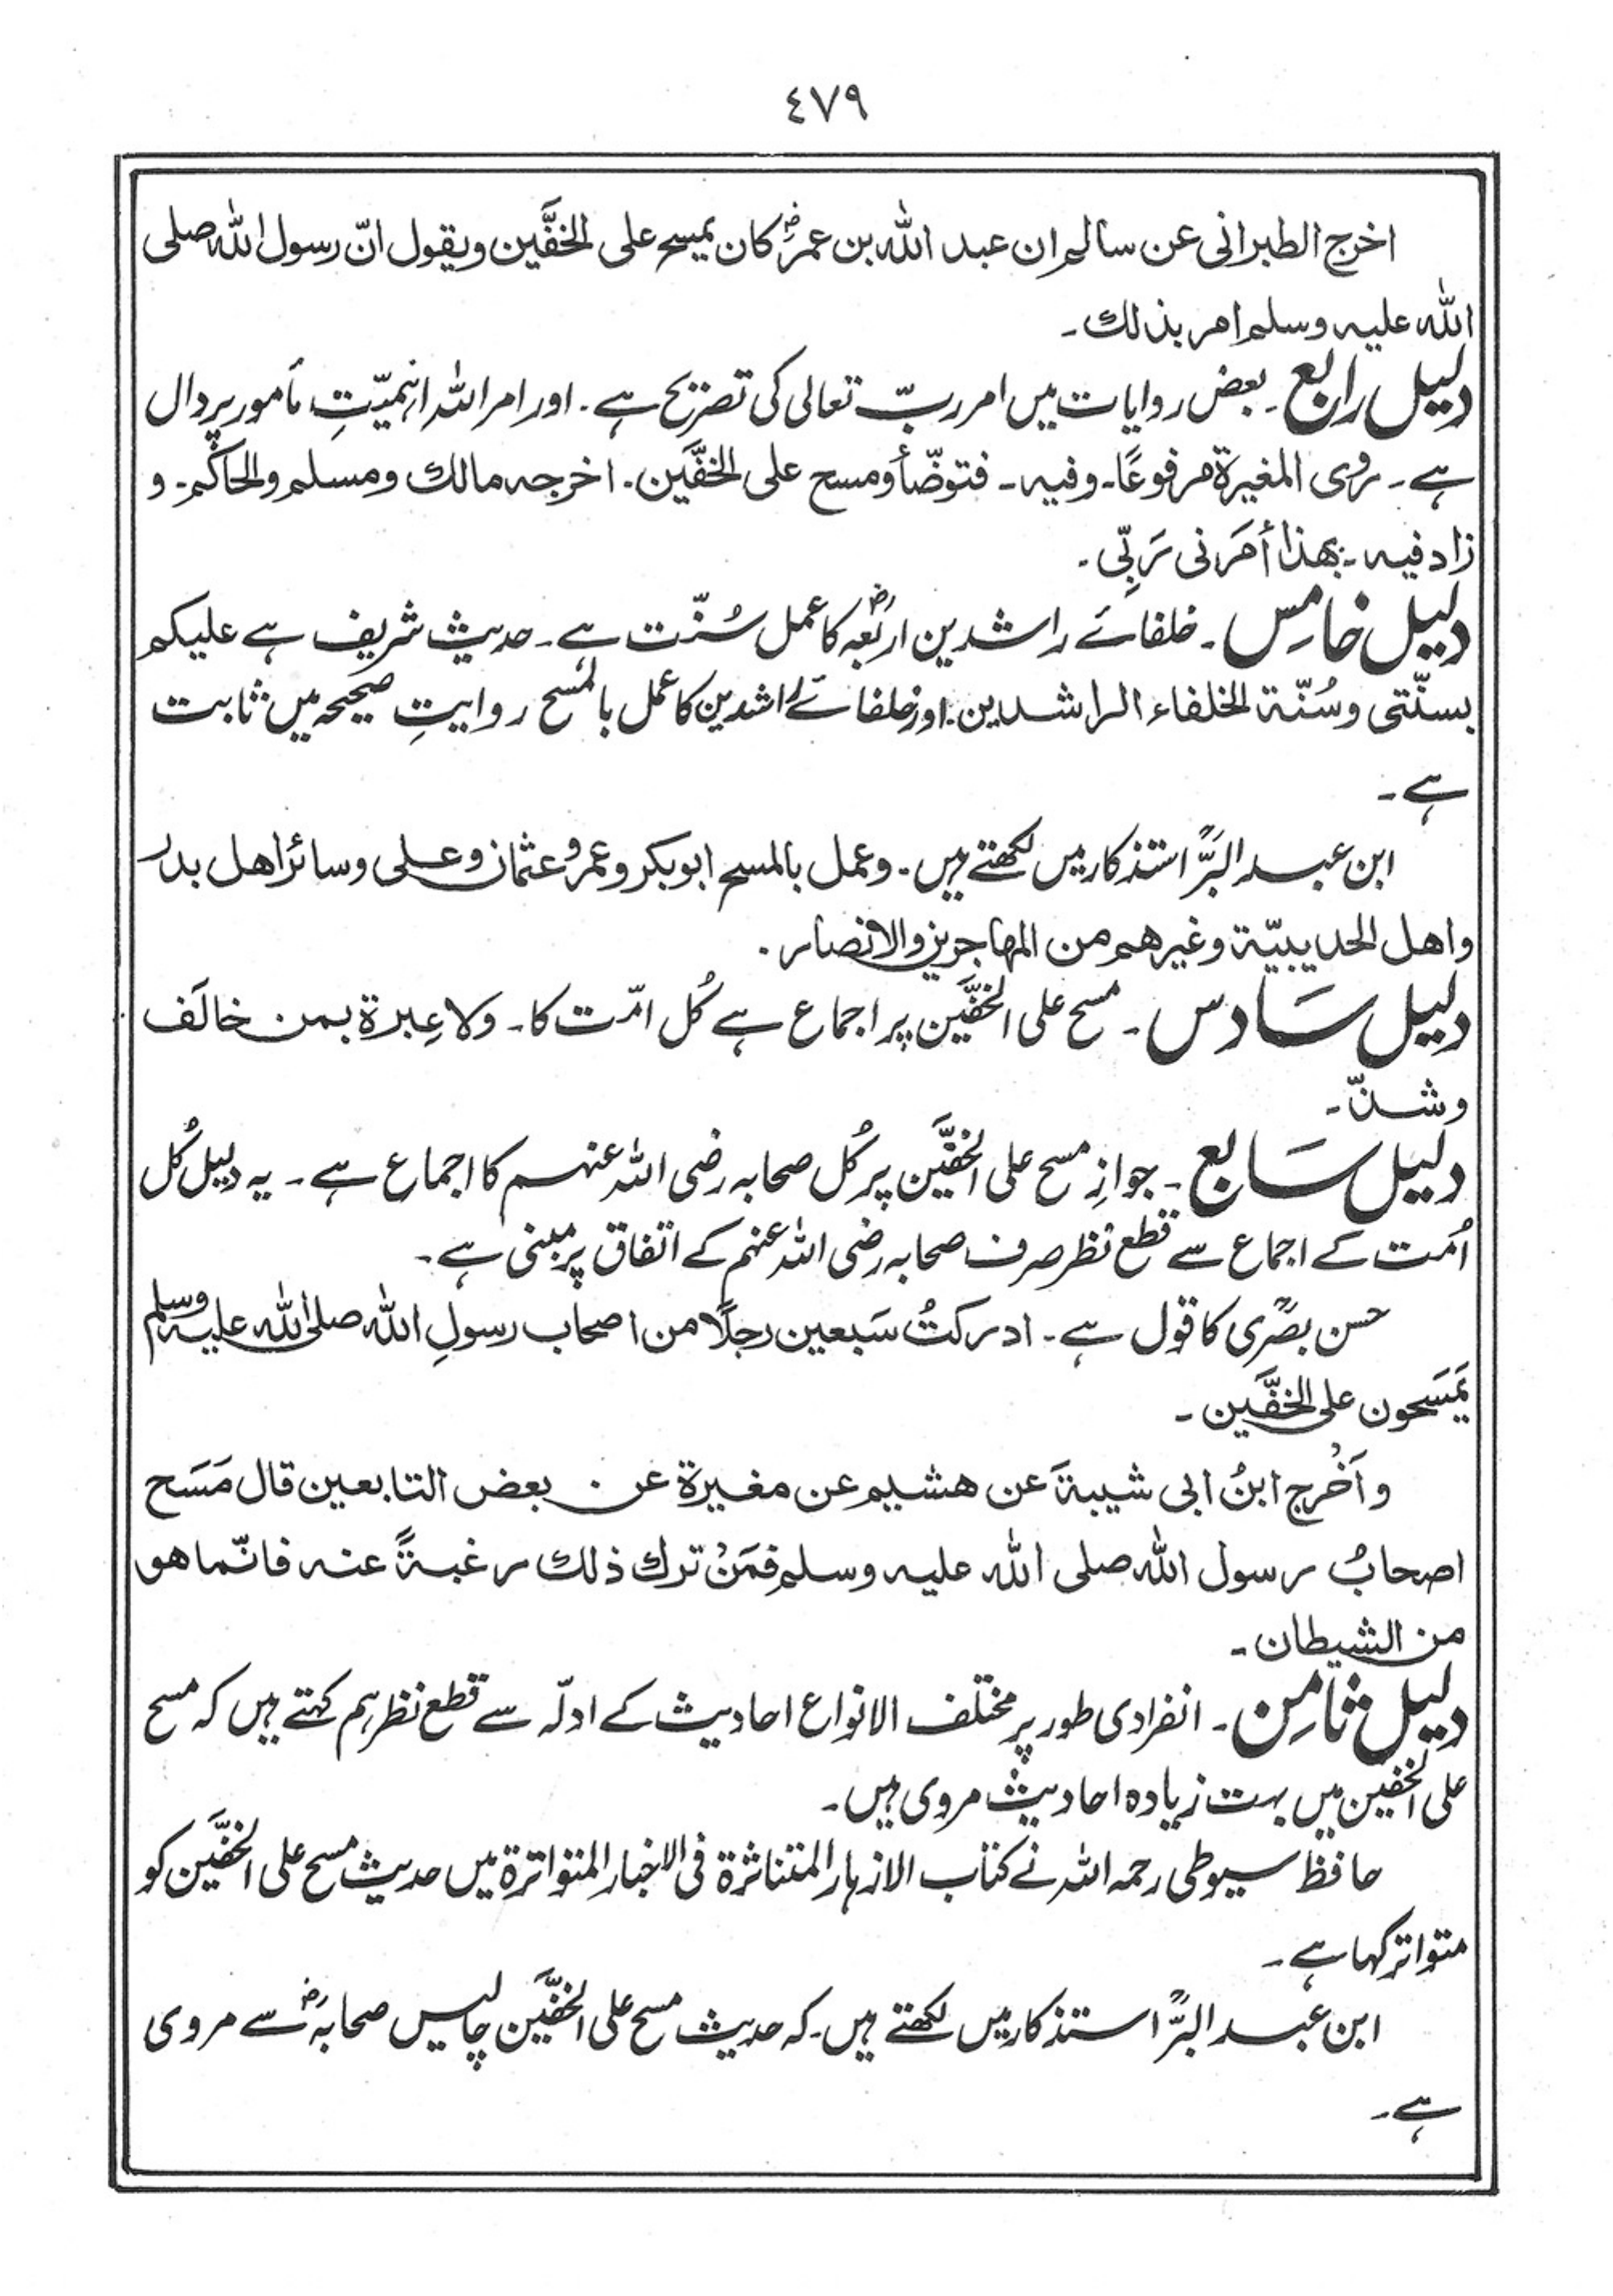 ٤٧٩
اخرج الطبرانی عن سالم ان عبد اللہ بن عمرؓ کان یمسح علی الخفَّین ویقول انّ رسول اللہ صلی
اللہ علیہ وسلم امر بذلك۔
دلیل رابع۔ بعض روایات میں امر ربّ تعالی کی تصریح ہے۔ اور امر اللہ اہمیّتِ مأمور پر دال
ہے۔ روی المغیرۃ مرفوعًا۔ وفیہ۔ فتوضّأ ومسح علی الخفَّین۔ اخرجہ مالك ومسلم والحاکم۔ و
زاد فیہ۔ بھذا أمَرَنی رَبِّی۔
دلیل خامِس۔ خلفائے راشدین اربعہؓ کا عمل سُنّت ہے۔ حدیث شریف ہے علیکم
بسنّتی وسُنّۃ الخلفاء الراشدین۔ اور خلفائے راشدین کا عمل بالمسح روایتِ صحیحہ میں ثابت
ہے۔
ابن عبد البَرؒ استذکار میں لکھتے ہیں۔ وعمل بالمسح ابوبکر وعمر وعثمان وعلی وسائر اھل بدر
واھل الحدیبیّۃ وغیرھم من المھاجرین والانصار۔
دلیل سَادس۔ مسح علی الخفَّین پر اجماع ہے کُل امّت کا۔ ولا عِبرۃ بمن خالَف
وشذّ۔
دلیل سَابع۔ جوازِ مسح علی الخفَّین پر کُل صحابہ رضی اللہ عنہم کا اجماع ہے۔ یہ دلیل کُل
اُمت کے اجماع سے قطع نظر صرف صحابہ رضی اللہ عنہم کے اتفاق پر مبنی ہے۔
حسن بصریؒ کا قول ہے۔ ادرکتُ سَبعین رجلًا من اصحاب رسولِ اللہ صلی اللہ علیہ وسلم
یَمسَحون علی الخفَّین۔
وأخرج ابنُ ابی شیبۃَ عن ھشیم عن مغیرۃ عن بعض التابعین قال مَسَح
اصحابُ رسول اللہ صلی اللہ علیہ وسلم فمَنْ ترك ذلك رغبۃً عنہ فانّما ھو
من الشیطان۔
دلیل ثامِن۔ انفرادی طور پر مختلف الانواع احادیث کے ادلّہ سے قطع نظر ہم کہتے ہیں کہ مسح
علی الخفین میں بہت زیادہ احادیث مروی ہیں۔
حافظ سیوطی رحمہ اللہ نے کتاب الازہار المتناثرۃ فی الاخبار المتواترۃ میں حدیث مسح علی الخفَّین کو
متواتر کہا ہے۔
ابن عبد البرؒ استذکار میں لکھتے ہیں۔ کہ حدیث مسح علی الخفَّین چالیس صحابہؓ سے مروی
ہے۔